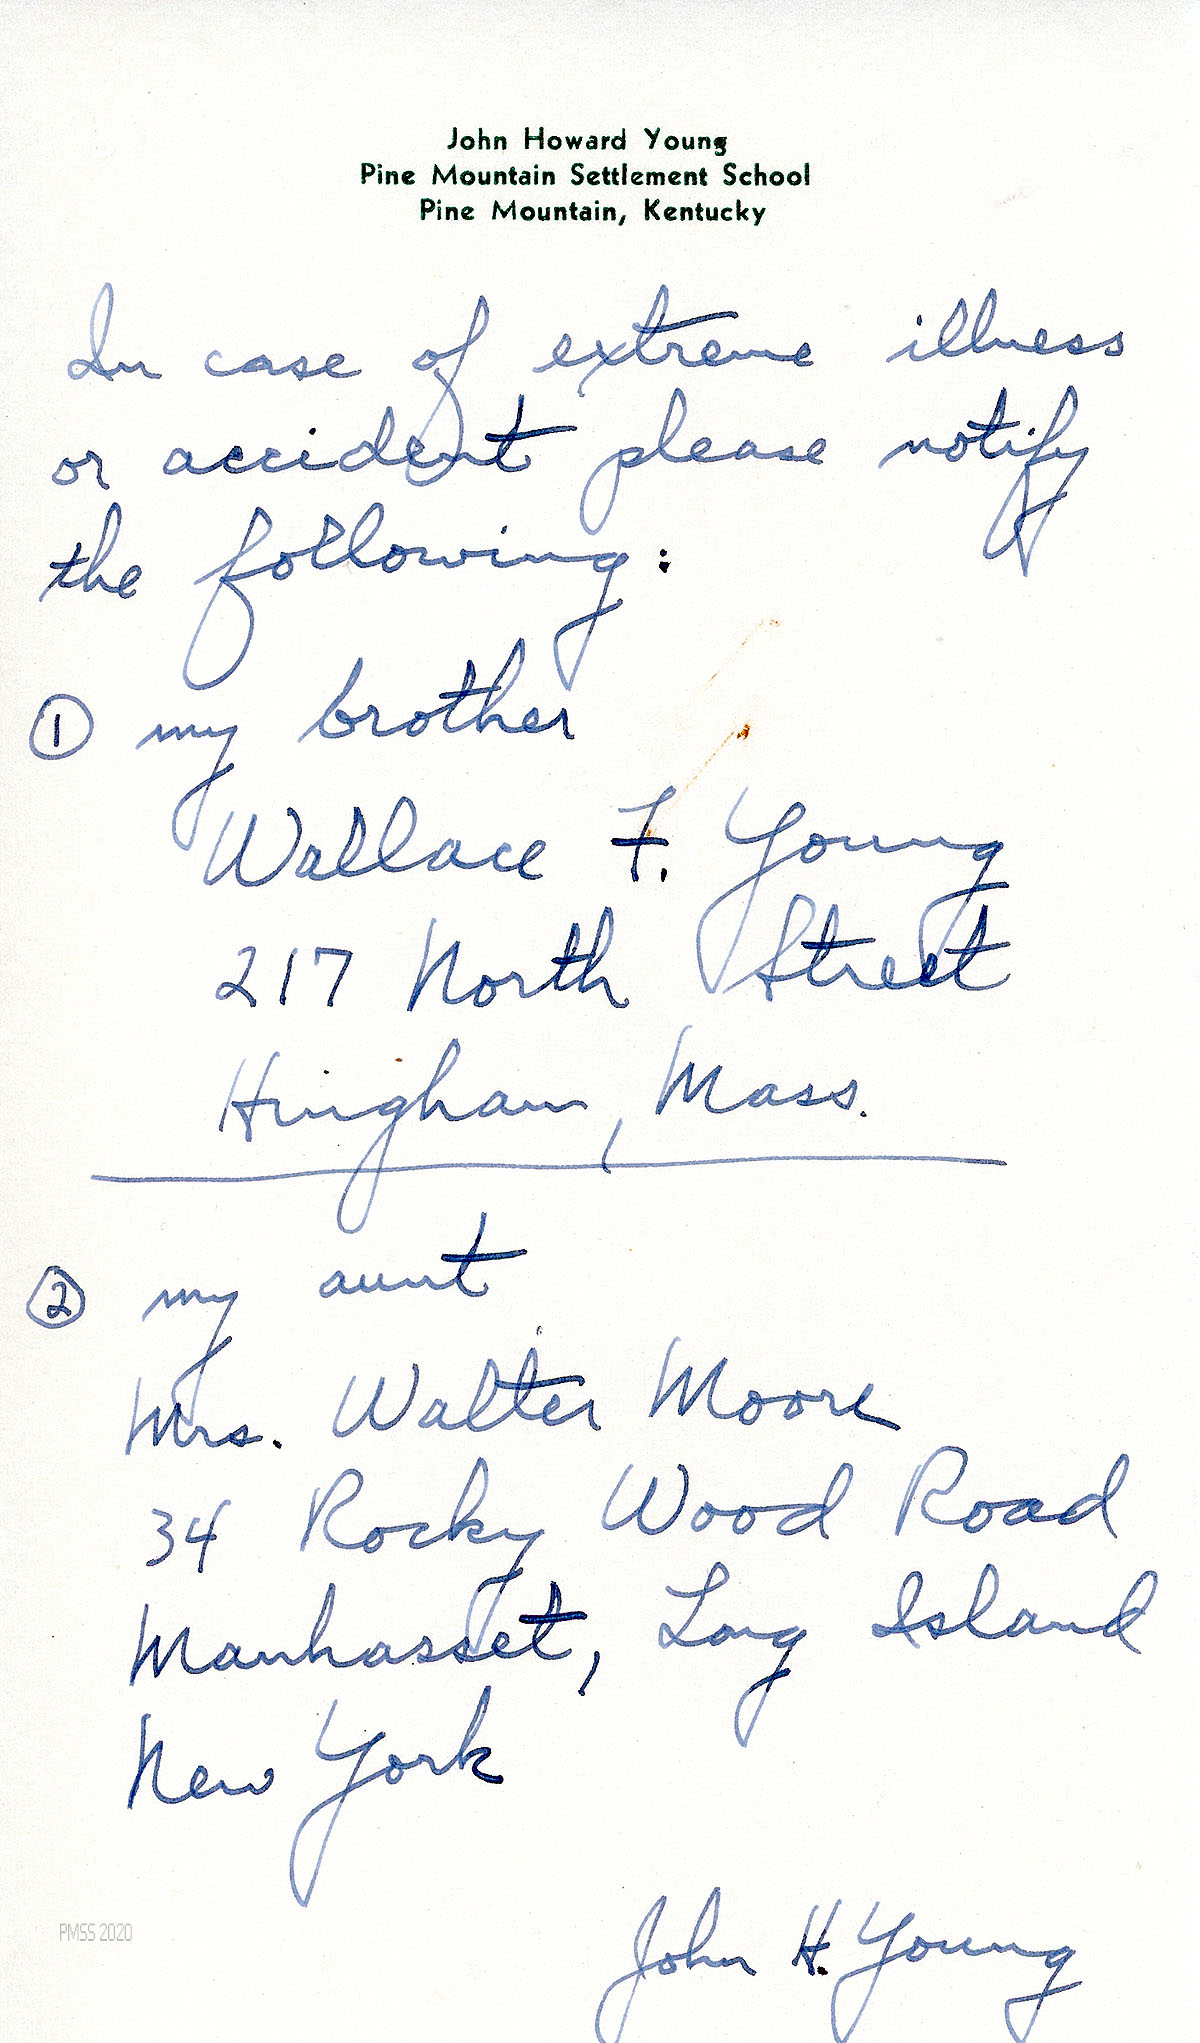 John Howard Young
Pine Mountain Settlement School
Pine Mountain, Kentucky
In case of extreme illness
or accident please notify
the following:
① my brother
Wallace F. Young
217 North Street
Hingham, Mass.
② my aunt
Mrs. Walter Moore
34 Rocky Wood Road
Manhasset, Long Island
New York
John H. Young
PMSS 2020